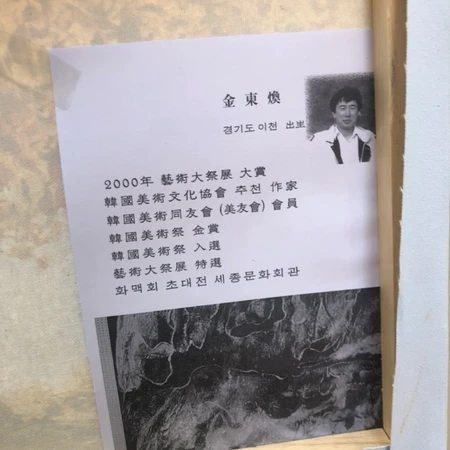 金東煥
경기도 이천 出生
2000年 藝術大祭展 大賞
韓國美術文化協會 추천 作家
韓國美術同友會 (美友會) 會員
韓國美術祭 金賞
韓國美術祭 入選
藝術大祭展 特選
화맥회 초대전 세종문화회관